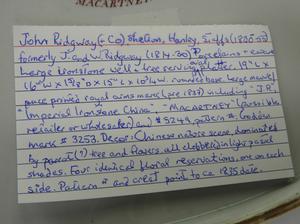 MACARTNEY
John Ridgway (+ Co) Shelton, Hanley, Staffs (1830-55)
formerly J. and W. Ridgway (1814-30) Porcelain + earthenware
Large ironstone well + tree serving platter 19" L x
mauve
printed royal arms mark (pre 1837) including "J.R."
"Imperial Ironstone China" - "MACARTNEY" (possibly
retailer or wholesaler) and # 5248 pattern #. Godden
mark # 3253. Decor: Chinese nature scene, dominated
by peacock (?) tree and flowers, all clobbered in light pastel
shades. Four identical floral reservations, one on each
side. Pattern # and crest point to ca 1835 date.